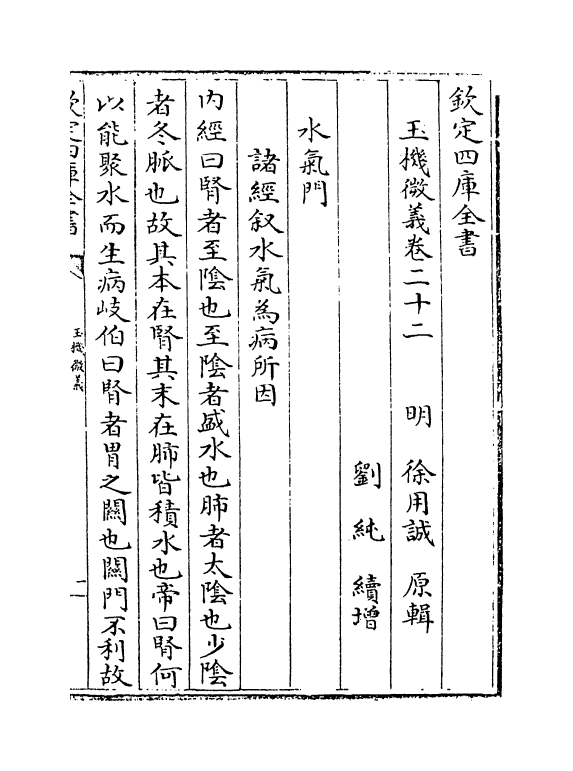 欽定四庫全書
玉機微義卷二十二　明　徐用誠　原輯
劉純　續増
水氣門
諸經叙水氣為病所因
内經曰腎者至隂也至隂者盛水也肺者太隂也少隂
者冬脈也故其本在腎其末在肺皆積水也帝曰腎何
以能聚水而生病岐伯曰腎者胃之闗也闗門不利故
欽定四庫全書
玉機微義